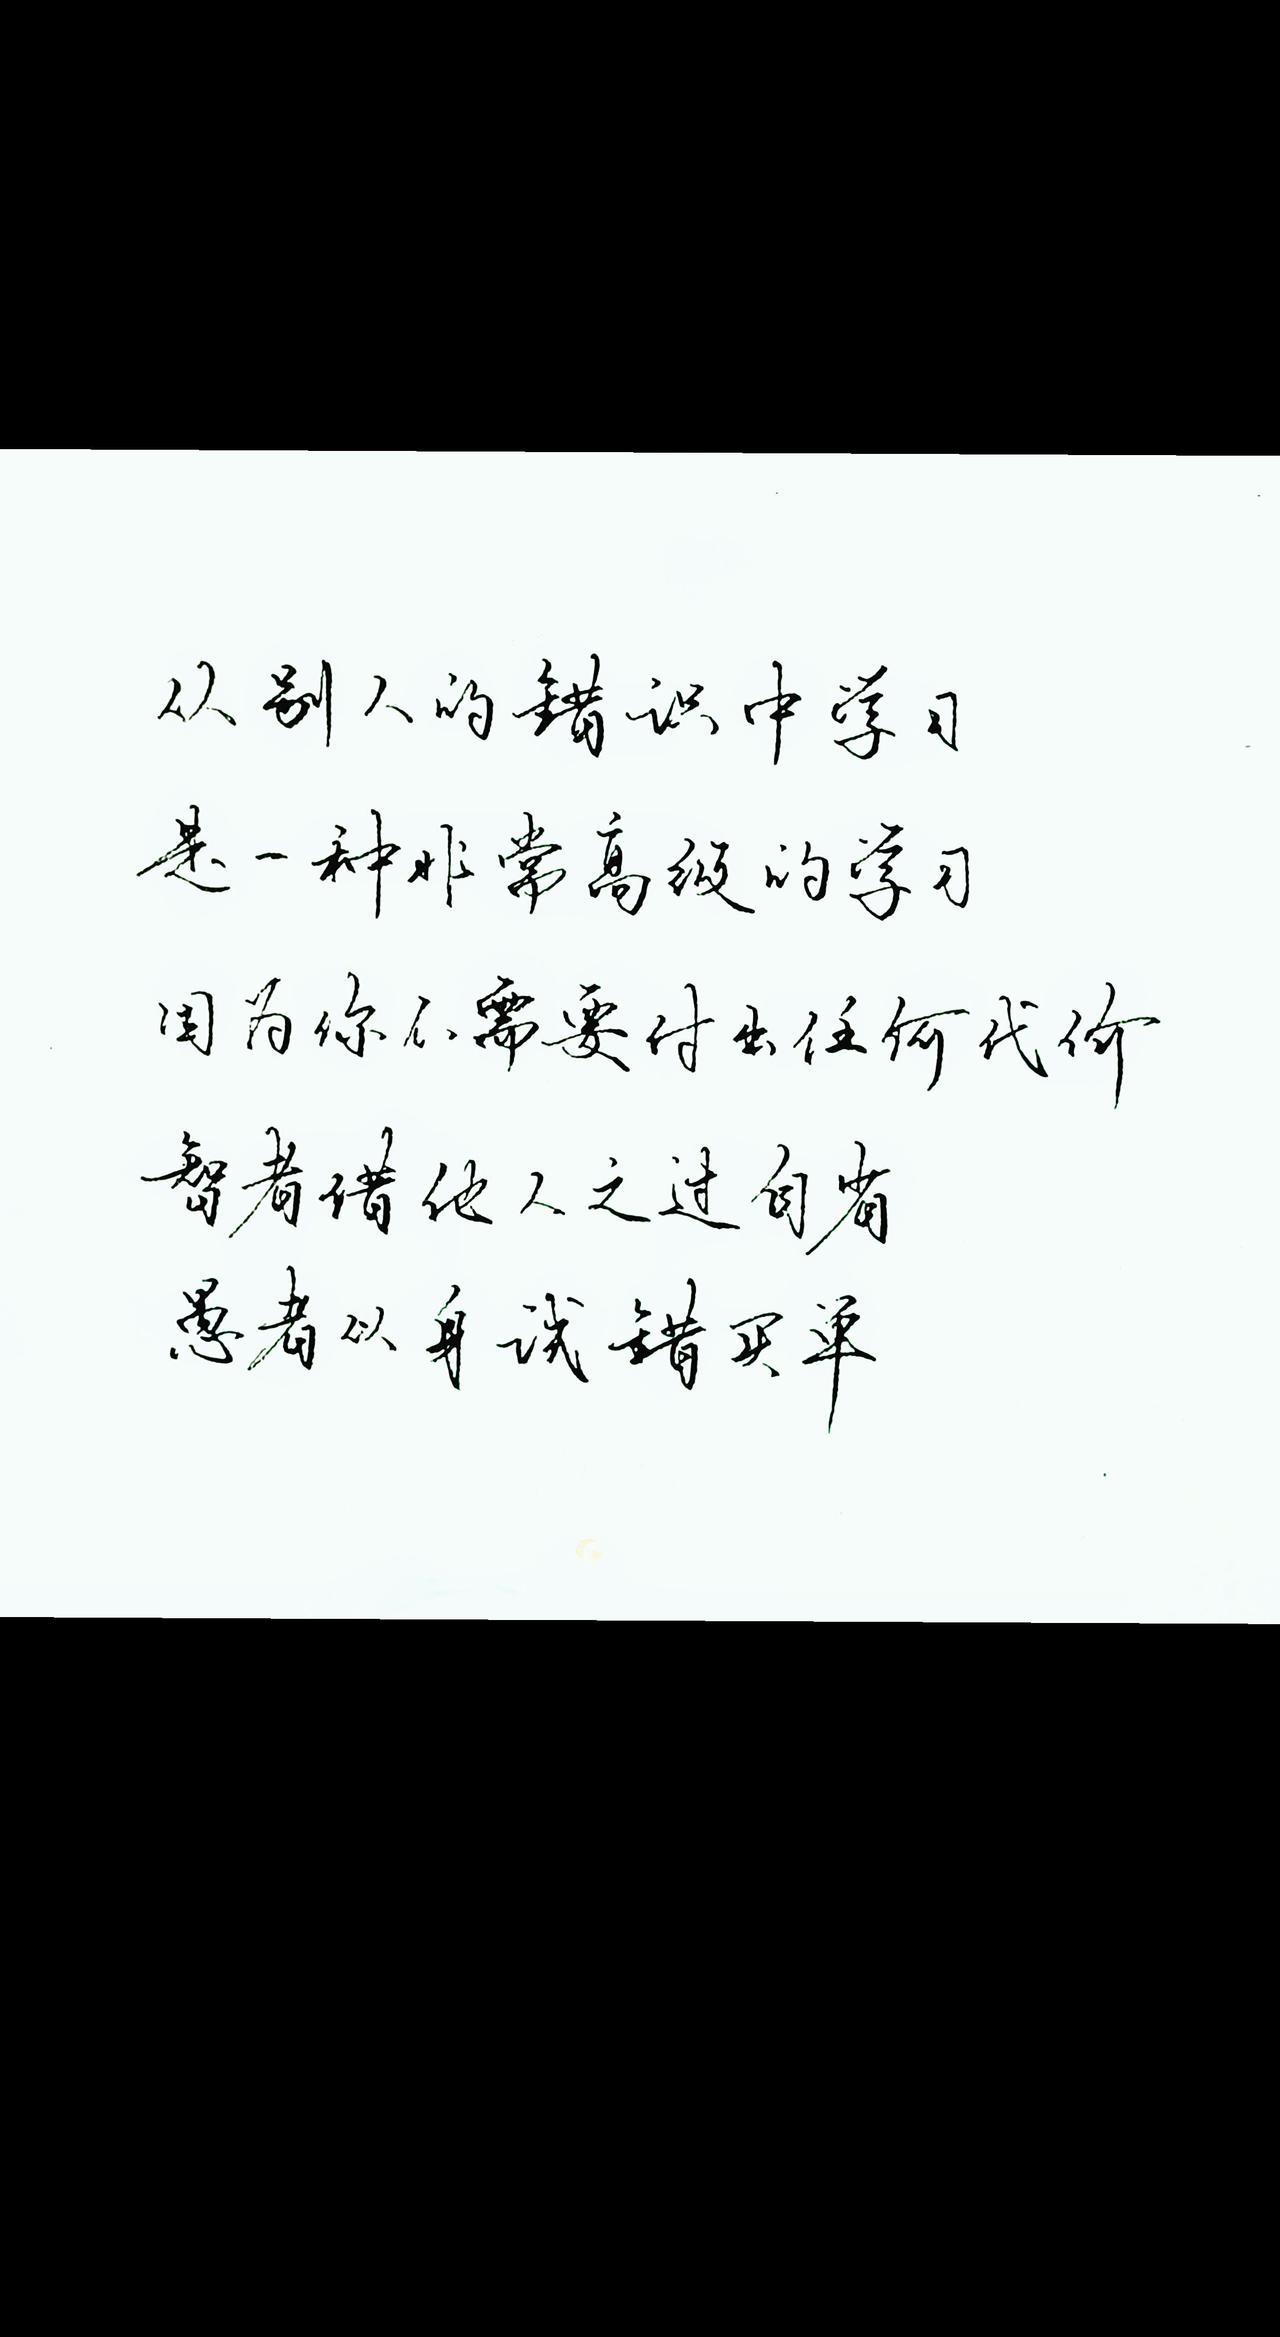 从别人的错识中学习
是一种非常高级的学习
因为你不需要付出任何代价
智者借他人之过自省
愚者以身试错买单